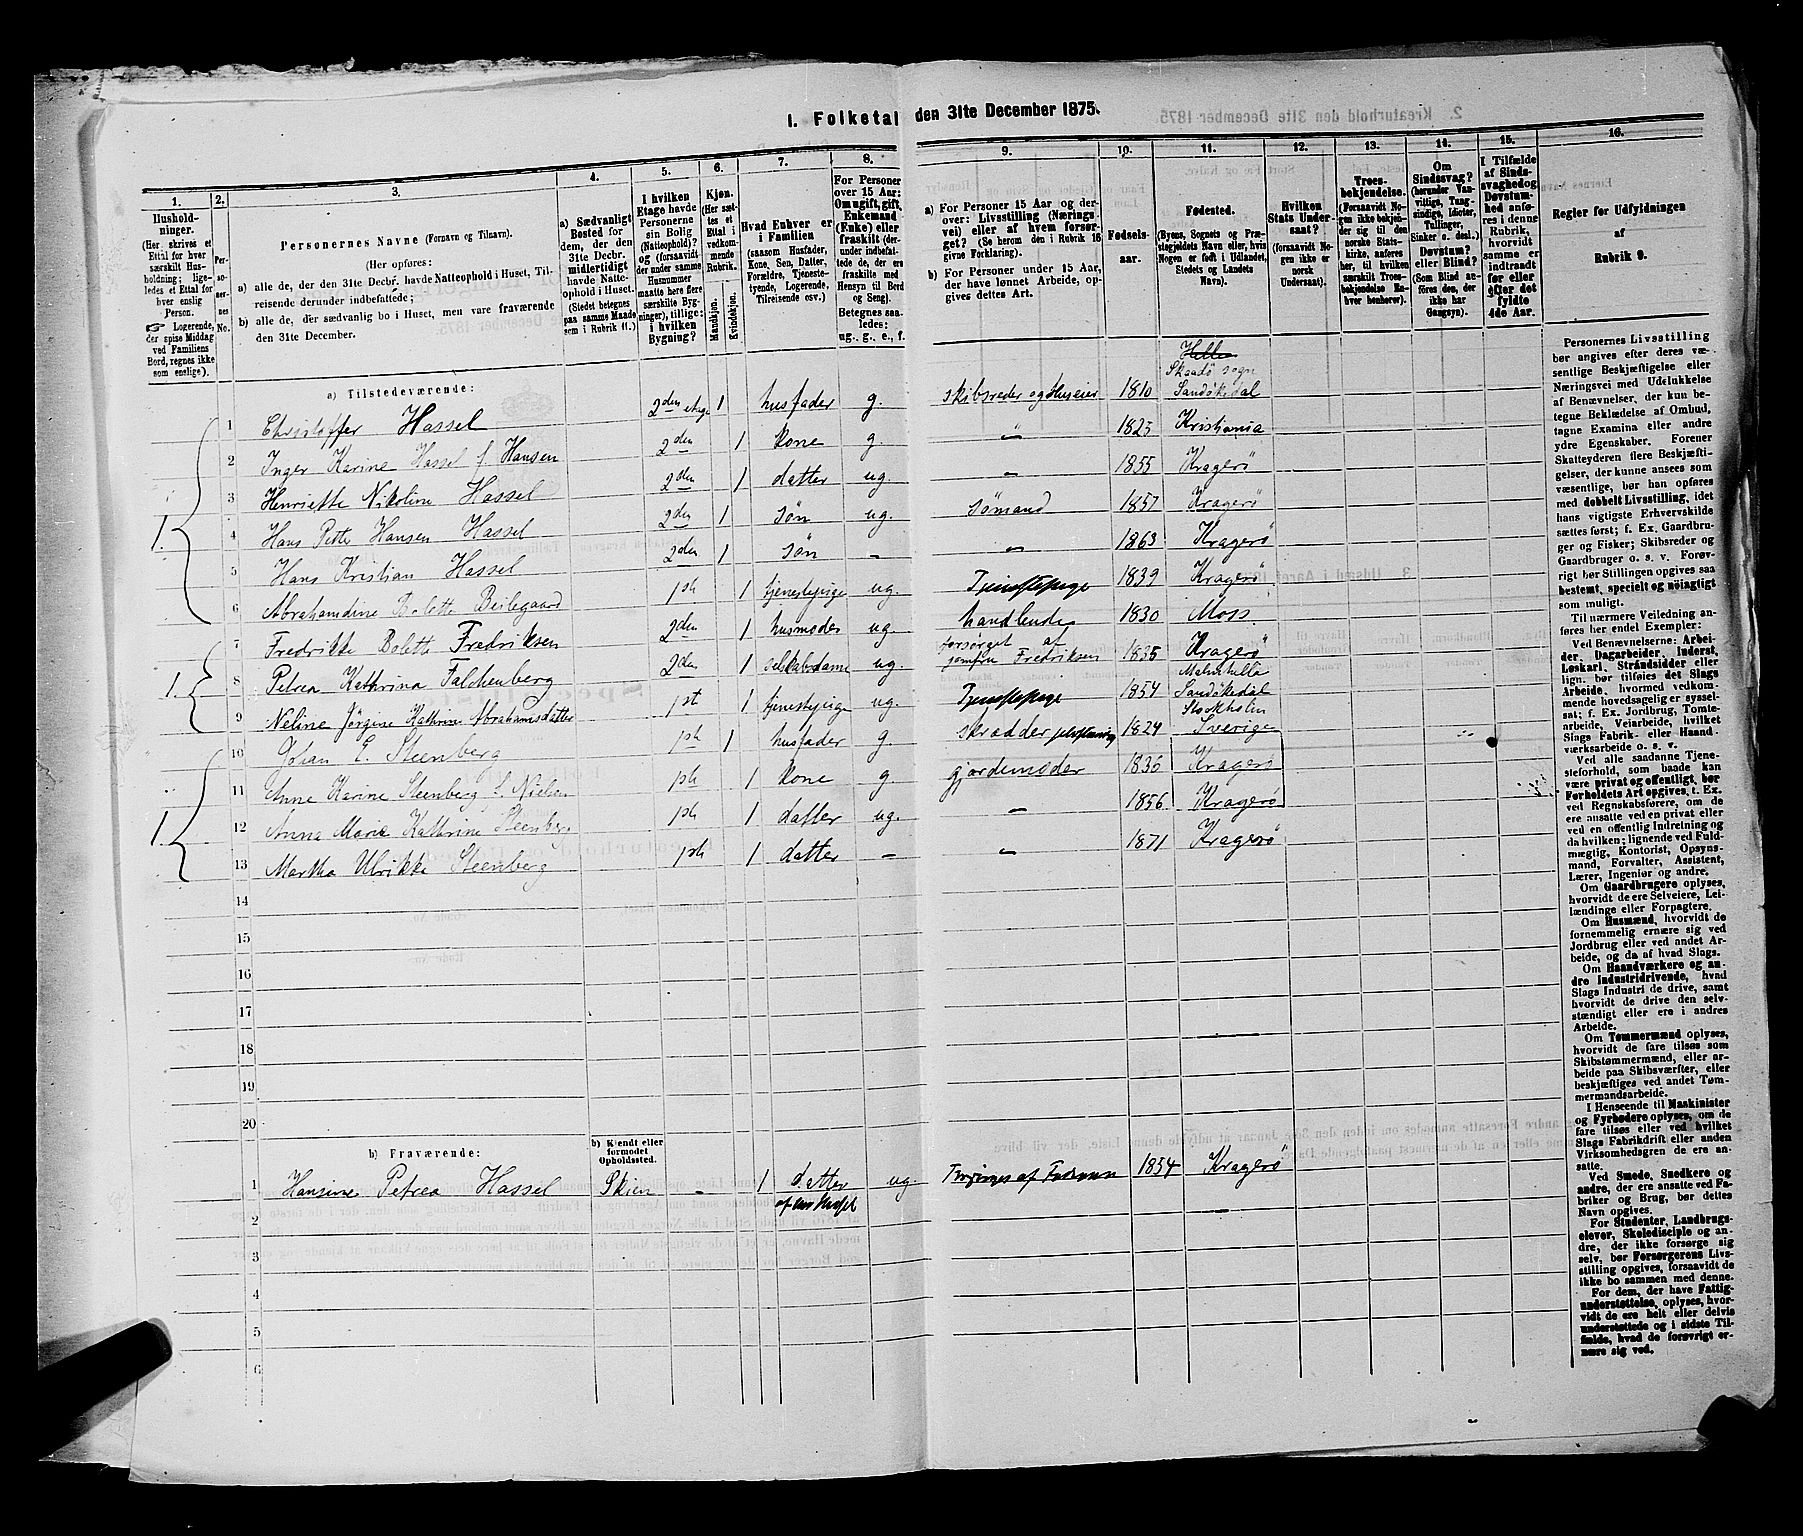 1. Folketal den 31te December 1875.
1.
Hushold-
ninger.
(Her skrives et
Ettal for hver
særskilt Hus-
holdning; lige-
ledes et Ettal for
hver enslig
Person.
☞ Logerende,
der spise Middag
ved Familiens
Bord, regnes ikke
som enslige).
2.
Per-
so-
ner-
nes
No.
3.
Personernes Navne (Fornavn og Tilnavn).
(Her opføres:
a) alle de, der den 31te Decbr. havde Natteophold i Huset, Til-
reisende derunder indbefattede;
b) alle de, der sædvanlig bo i Huset, men vare fraværende
den 31te December.
4.
a) Sædvanligt
Bosted for
dem, der den
31te Decbr.
midlertidigt
havde Natte-
ophold i Huset.
(Stedet betegnes
paa samme Maade
som i Rubrik 11.)
5.
I hvilken
Etage havde
Personerne
sin Bolig
(Natteophold)?
og (forsaavidt
der under samme
Husnummer
maatte høre flere
særskilte Byg-
ninger), tillige:
i hvilken
Bygning?
6.
Kjøn.
(Her sæt-
tes et
Ettal i
vedkom-
mende
Rubrik.
Mandkjøn.
Kvindekjøn.
7.
Hvad Enhver er
i Familien
(saasom Husfader,
Kone, Søn, Datter,
Forældre, Tjeneste-
tyende, Logerende,
Tilreisende osv.)
8.
For Personer
over 15 Aar:
Om ugift, gift,
Enkemand
(Enke) eller
fraskilt (der-
under indbefat-
tede de, der ere
fraskilte med
Hensyn til Bord
og Seng).
Betegnes saa-
ledes:
ug., g., e., f.
9.
a) For Personer 15 Aar og der-
over: Livsstilling (Nærings-
vei) eller af hvem forsør-
get? (Se herom den i Rubrik 16
givne Forklaring).
b) For Personer under 15 Aar,
der have lønnet Arbeide, op-
gives dettes Art.
10.
Fødsels-
aar.
11.
Fødested.
(Byens, Sognets og Præ-
stegjeldets Navn eller, hvis
Nogen er født i Udlandet,
Stedets og Landets
Navn).
12.
Hvilken
Stats Under-
saat?
(forsaavidt No-
gen ikke er
norsk
Undersaat).
13.
Troes-
bekjendelse.
(Forsaavidt No-
gen ikke bekjen-
der sig til den
norske Stats-
kirke, anføres
her, til hvilken
særskilt Troes-
bekjendelse En-
hver henhører).
14.
Om
Sindssvag?
(herunder Van-
vittige, Tung-
sindige, Idioter,
Tullinger,
Sinker o. desl.)
Døvstum?
eller Blind?
(Som Blind an-
føres den, der
ikke har
Gangsyn).
15.
I Tilfælde
af Sinds-
svaghed og
Døvstum-
hed anfø-
res i denne
Rubrik,
hvorvidt
samme er
indtraadt
før eller
efter det
fyldte
4de Aar.
16.
Regler for Udfyldningen
af
Rubrik 9.
a) Tilstedeværende:
1. 1 Christoffer Hassel 2den etage 1 husfader g. skibsreder og Huseier 1810 Helle Skaadø sogn Sandøkedal
2 Inger Karine Hassel f. Hansen 2den 1 kone g. " 1825 Kristiania
3 Henriette Nikoline Hassel 2den 1 datter ug. " 1855 Kragerö
4 Hans Petter Hansen Hassel 2den 1 søn ug. Sømand 1857 Kragerö
5 Hans Kristian Hassel 2den 1 søn – " 1863 Kragerö
6 Abrahamdine Bolette Beilegaard 1st 1 tjenestepige ug. Tjenestepige 1839 Kragerö
1. 7 Fredrikke Bolette Fredriksen 2den 1 husmoder ug handlende 1830 Moss.
8 Petrea Kathrina Falchenberg 2den 1 selskabsdame ug. forsørget af jomfru Fredriksen 1835 Kragerö
9 Neline Jörgine Kathrine Abrahamsdatter 1st 1 tjenestepige ug. Tjenestepige 1854 Sandökedal
1. 10 Johan E. Steenberg 1st 1 husfader g. skrædder 1824 Stockholm Sverige
11 Anne Karine Steenberg f. Nielsen 1st 1 kone g. gjordemoder 1836 Kragerö
12 Anna Marie Kathrine Steenberg 1st 1 datter ug. " 1856 Kragerö
13 Martha Ulrikke Steenberg 1st 1 datter – " 1871 Kragerö
14
15
16
17
18
19
20
b) Fraværende:
b) Kjendt eller
formodet
Opholdssted.
1 Hansine Petrea Hassel Skien – 1 datter af Chr Hassel ug. Forsørges af Faderen 1854 Kragerö
2
3
4
5
6
Personernes Livsstilling
bør angives efter deres væ-
sentlige Beskjæftigelse eller
Næringsvei med Udelukkelse
af Benævnelser, der kun be-
tegne Beklædelse af Ombud,
tagne Examina eller andre
ydre Egenskaber. Forener
Skatteyderen flere Beskjæfti-
gelser, der kunne ansees som
væsentlige, bør han opføres
med dobbelt Livsstilling, idet
hans vigtigste Erhvervskilde
sættes først; f. Ex. Gaardbru-
ger og Fisker; Skibsreder og
Gaardbruger o. s. v. Forøv-
rigt bør Stillingen opgives saa
bestemt, specielt og nøiagtigt
som muligt.
Til nærmere Veiledning an-
føres her endel Exempler:
Ved Benævnelserne: Arbei-
der, Dagarbeider, Inderst,
Løskarl, Strandsidder eller
lign. bør tilføies det Slags
Arbeide, hvormed vedkom-
mende hovedsagelig er syssel-
sat; f. Ex. Jordbrug, Tomte-
arbeide, Veiarbeide, hvilket
Slags Fabrik- eller Haand-
værksarbeide o. s. v.
Ved alle saadanne Tjene-
steforhold, som baade kan
være privat og offentligt, bør
Forholdets Art opgives, f. Ex.
ved Regnskabsførere, om de
ere ansatte ved en privat eller
ved en offentlig Indretning og
da hvilken; lignende ved Fuld-
mægtig, Kontorist, Opsyns-
mand, Forvalter, Assistent,
Lærer, Ingeniør og andre.
Om Gaardbrugere oplyses,
hvorvidt de ere Selveiere, Lei-
lændinge eller Forpagtere.
Om Husmænd, hvorvidt de
fornemmelig ernære sig ved
Jordbrug eller ved andet Ar-
beide, og da af hvad Slags.
Om Haandværkere og an-
dre Industridrivende, hvad
Slags Industri de drive, samt
hvorvidt de drive den selv-
stændigt eller ere i andres
Arbeide.
Om Tømmermænd oplyses,
hvorvidt de fare tilsøs som
Skibstømmermænd, eller ar-
beide paa Skibsværfter, eller
beskjæftiges ved andet Tøm-
mermandsarbeide.
I Henseende til Maskinister
og Fyrbødere oplyses, om de
fare tilsøs eller ved hvilket
Slags Fabrikdrift eller anden
Virksomhedsgren de ere an-
satte.
Ved Smede, Snedkere og
andre, der ere ansatte ved Fa-
briker og Brug, bør dettes
Navn opgives.
For Studenter, Landbrugs-
elever, Skoledisciple og an-
dre, der ikke forsørge sig
selv, bør Forsørgerens Livs-
stilling opgives, forsaavidt de
ikke bo sammen med denne.
For dem, der have Fattig-
understøttelse, oplyses, hvor-
vidt de ere helt eller delvis
understøttede og i sidste Til-
fælde, hvad de forøvrigt er-
nære sig ved.